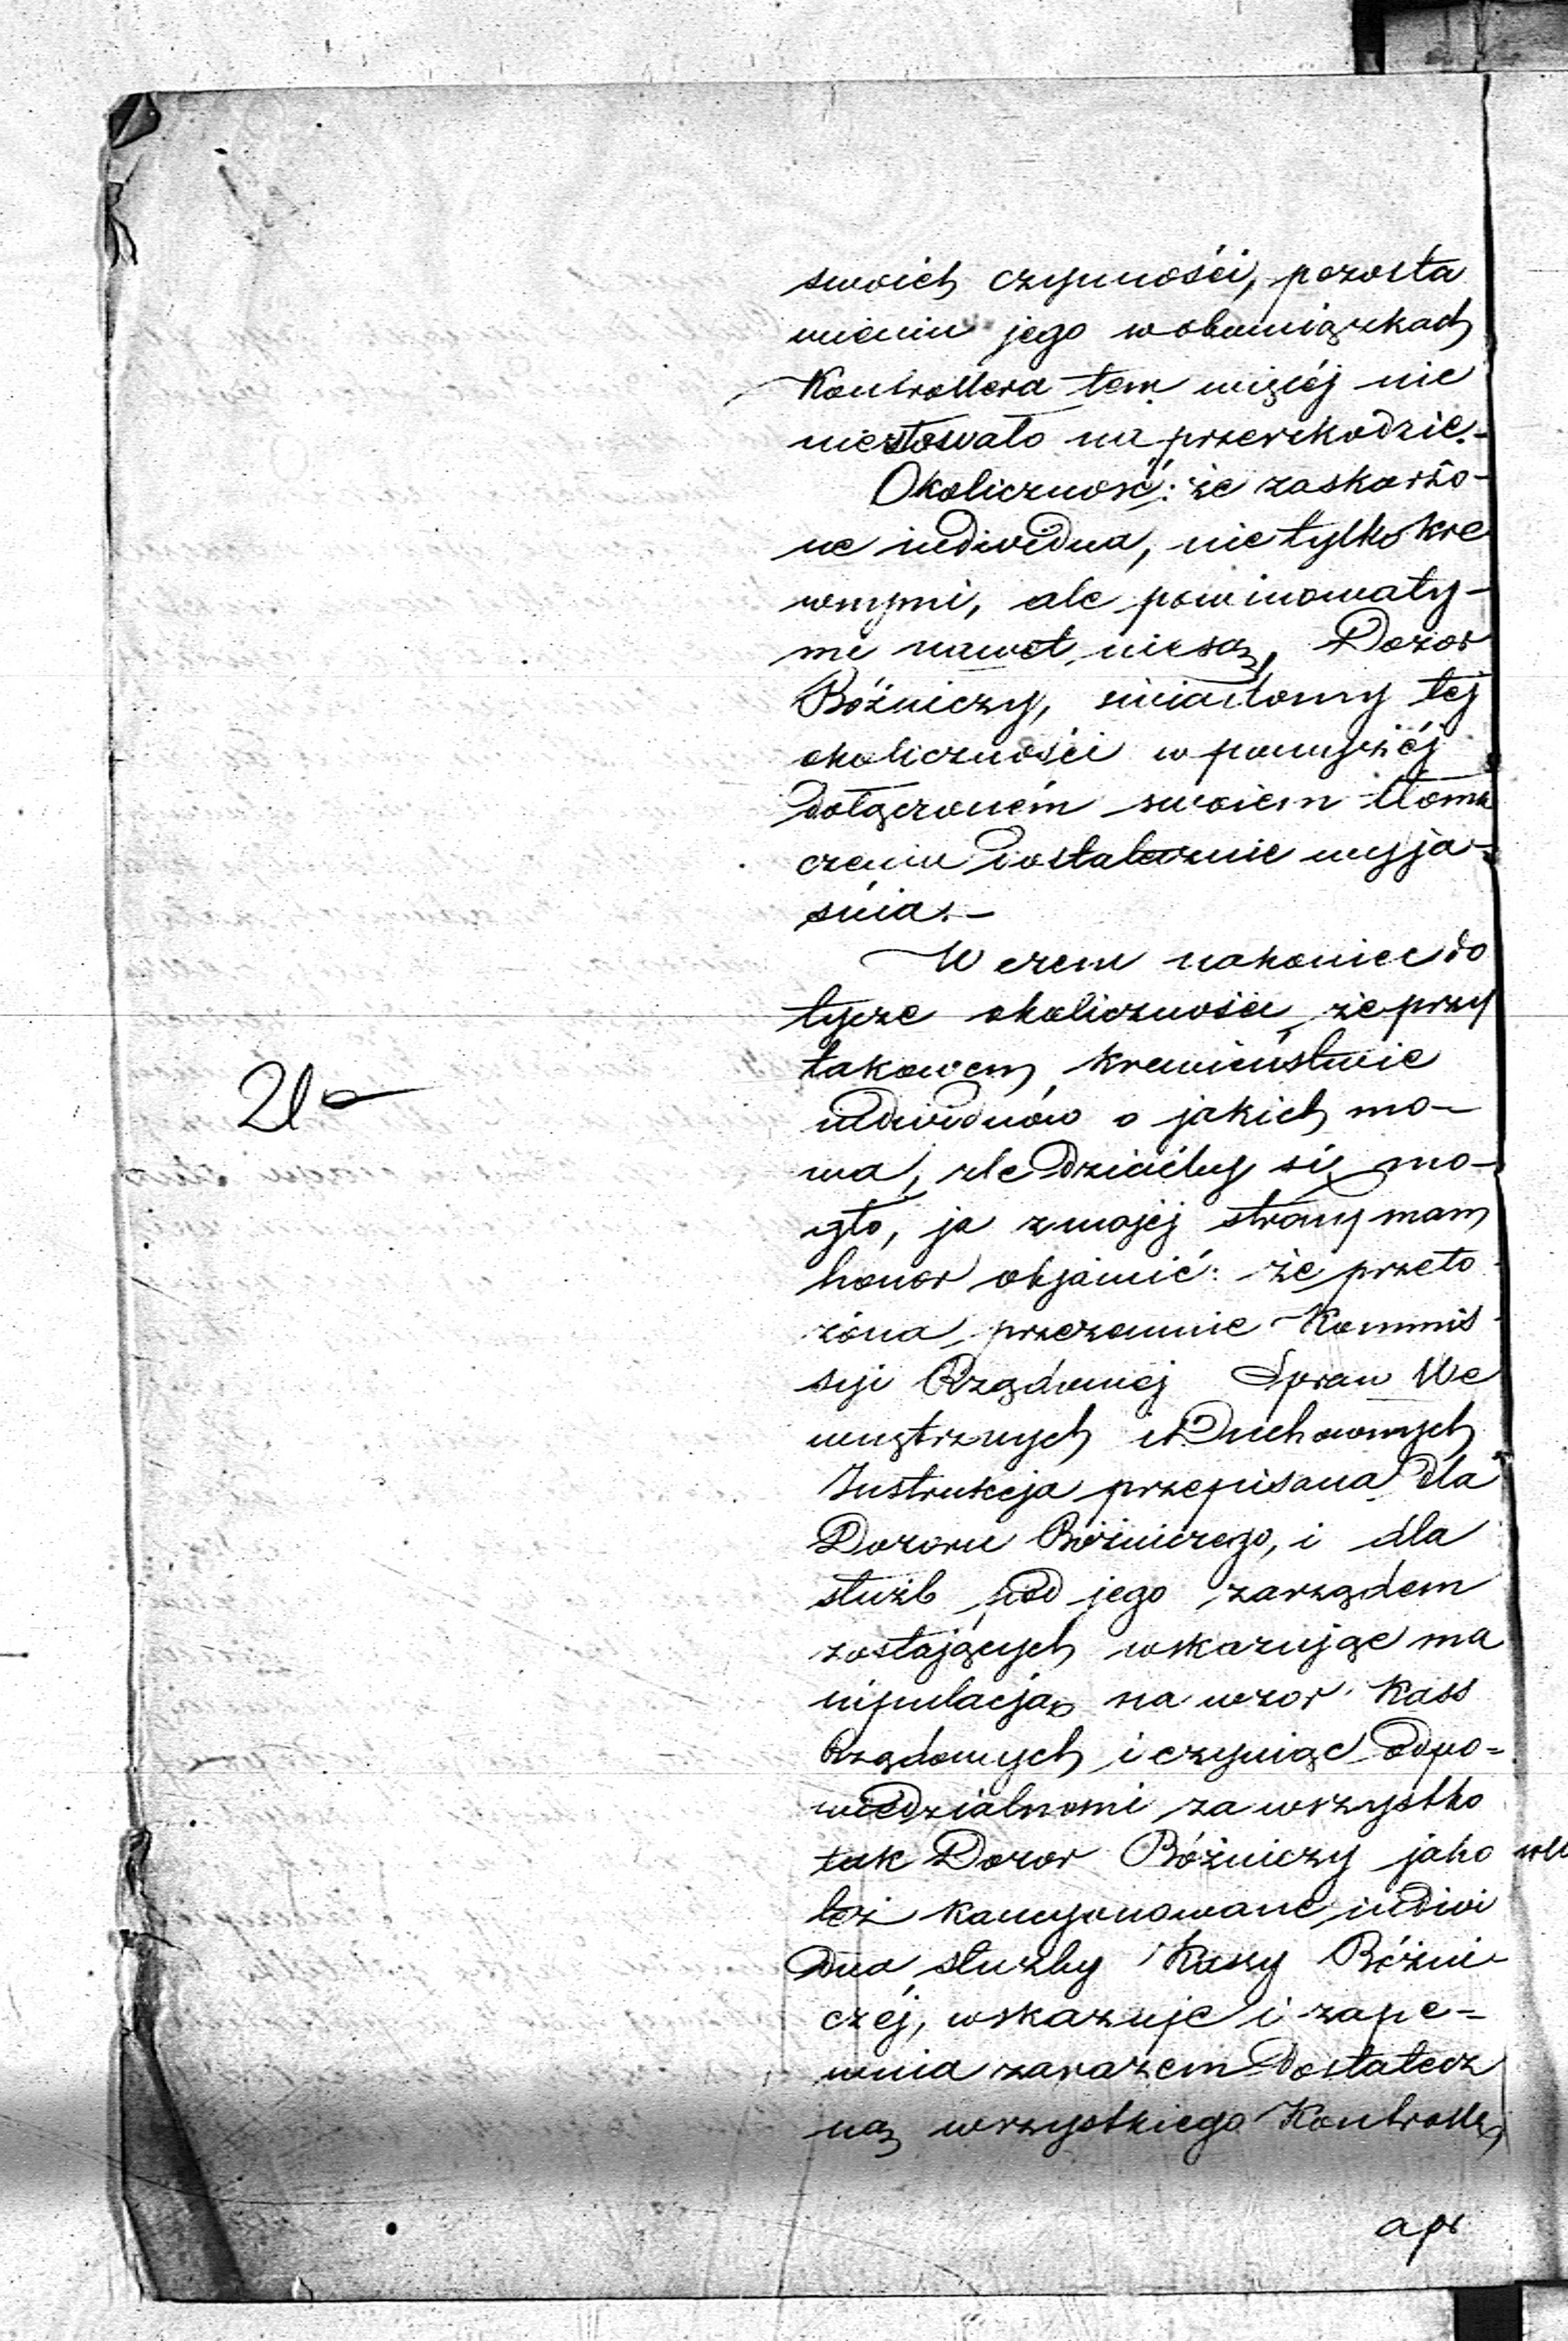 swoich czynności, pozosta
wieniu jego w obowiązkach
Kontrollera tem więcéj nie
niestowało na przeszkodzie.-
Okoliczność: że zaskarżo-
ne individua, nie tylko kre
wnymi, ale powinowaty-
mi nawet nie są, Dozor
Bóżniczy, świadomy téj
okoliczności w powyższéj
dołączoném swoiem tłoma
czeniu dostatecznie wyja-
śnia.-
W czem nakoniec do
tycze okoliczności, że przy
takowem krewieństwie
individuów o jakich mo-
wa, źle dziaćby się mo-
gło, ja z mojéj strony mam
honor objaśnić: że przeło-
żona przezemnie Kommis-
syi Rządowéj Spraw We
wnętrznych i Duchownych
Instrukcja przepisana dla
Dozoru Bóżniczego, i dla
służb pod jego zarządem
zostających wskazując ma
nipulacją na wzor Kass
Rządowych i czyniąc odpo=
wiedzialnemi za wszystko
tak Dozor Bóżniczy jako
też kaucyonowane indivi
dua służby Kasy Bóżni-
czéj, wskazuje i zape=
wnia zarazem dostatecz
ną wszystkiego Kontrollę,